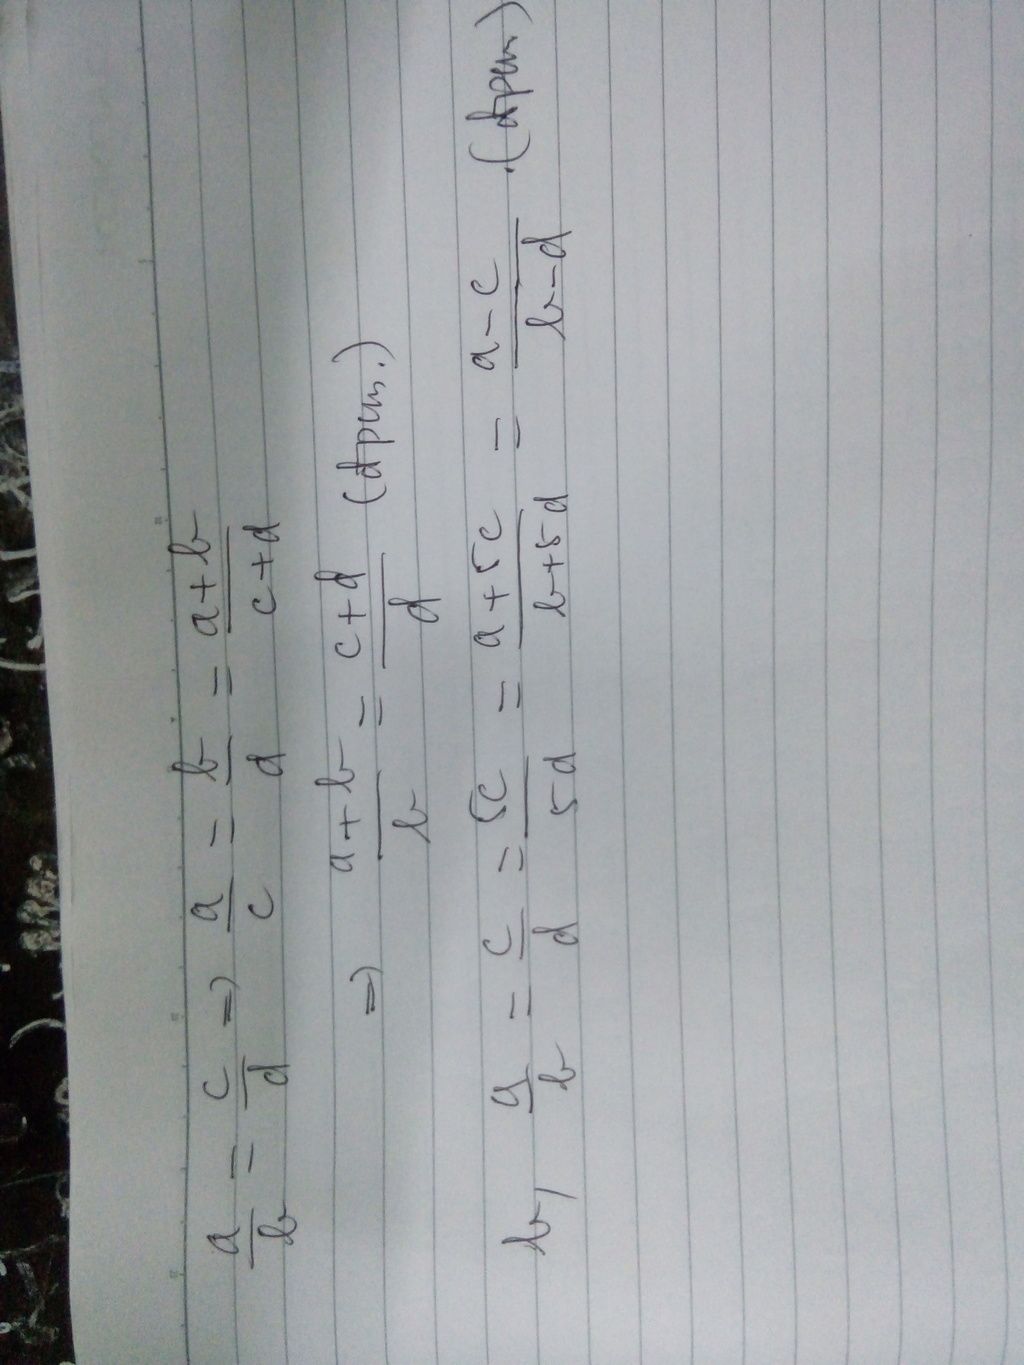 a/b = c/d => a/c = b/d = a+b/c+d
=> a+b/b = c+d/d (đpcm.)
b, a/b = c/d = 5c/5d = a+5c/b+5d = a-c/b-d .(đpcm)